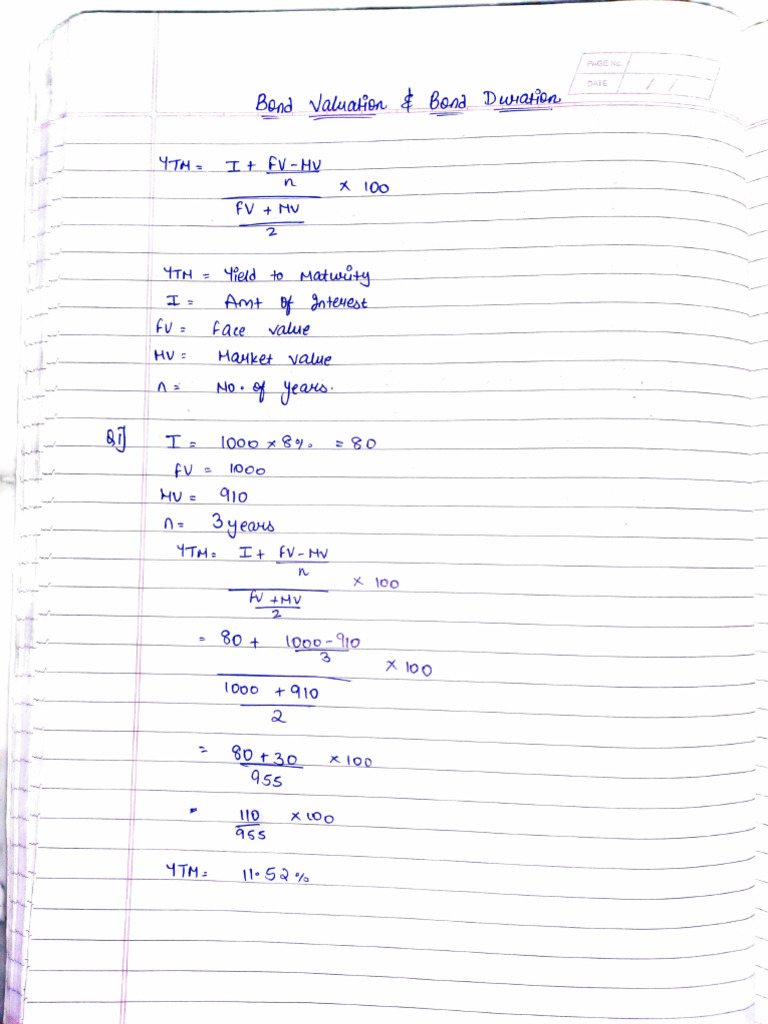 PAGE No.
DATE / /
Bond Valuation & Bond Duration
YTM = I + FV - MV
n
x 100
FV + MV
2
YTM = Yield to Maturity
I = Amt of Interest
FV = Face value
MV = Market value
n = No. of years.
Q1] I = 1000 x 8% = 80
FV = 1000
MV = 910
n = 3 years
YTM = I + FV - MV
n
x 100
FV + MV
2
= 80 + 1000 - 910
3
x 100
1000 + 910
2
= 80 + 30 x 100
955
= 110 x 100
955
YTM = 11.52%